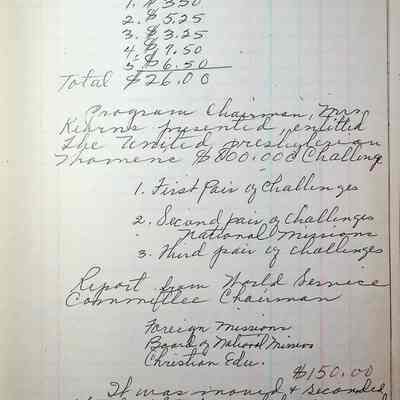 1. $ 3.50
2. $ 5.25
3. $ 3.25
4. $ 7.50
5. $ 6.50
Total $26.00
Program Chairman, Mrs.
Kearns presented, entitled
The United Presbyterian
Womens $ Challenge
1. First Pair of Challenges
2. Second pair of challenges
National Missions
3. Third pair of challenges
Report from World Service
Committee Chairman
Foreign Missions
Board of National Missions
Christian Edu.
$150.00
It was moved & seconded